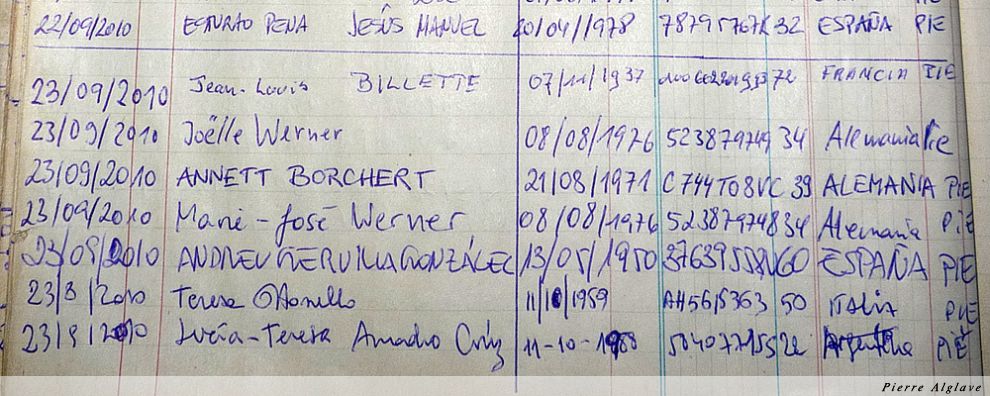 22/09/2010 PENA JESÚS MANUEL 20/04/1978 32 ESPAÑA PIE
23/09/2010 Jean-Louis BILLETTE 07/11/1937 72 FRANCIA PIE
23/09/2010 Joëlle Werner 08/08/1976 523879749 34 Alemania Pie
23/09/2010 ANNETT BORCHERT 21/08/1971 C744T08VC 39 ALEMANIA PIE
23/09/2010 Marie-José Werner 08/08/1976 523879748 34 Alemania PiE
23/09/2010 ANDREU GONZÁLEZ 13/05/1950 60 ESPAÑA PIE
23/9/2010 Teresa 11/10/1959 AH5615363 50 ITALIA PIE
23/9/2010 Lucía-Teresa Amadro 11-10-1988 22 PIE
Pierre Alglave